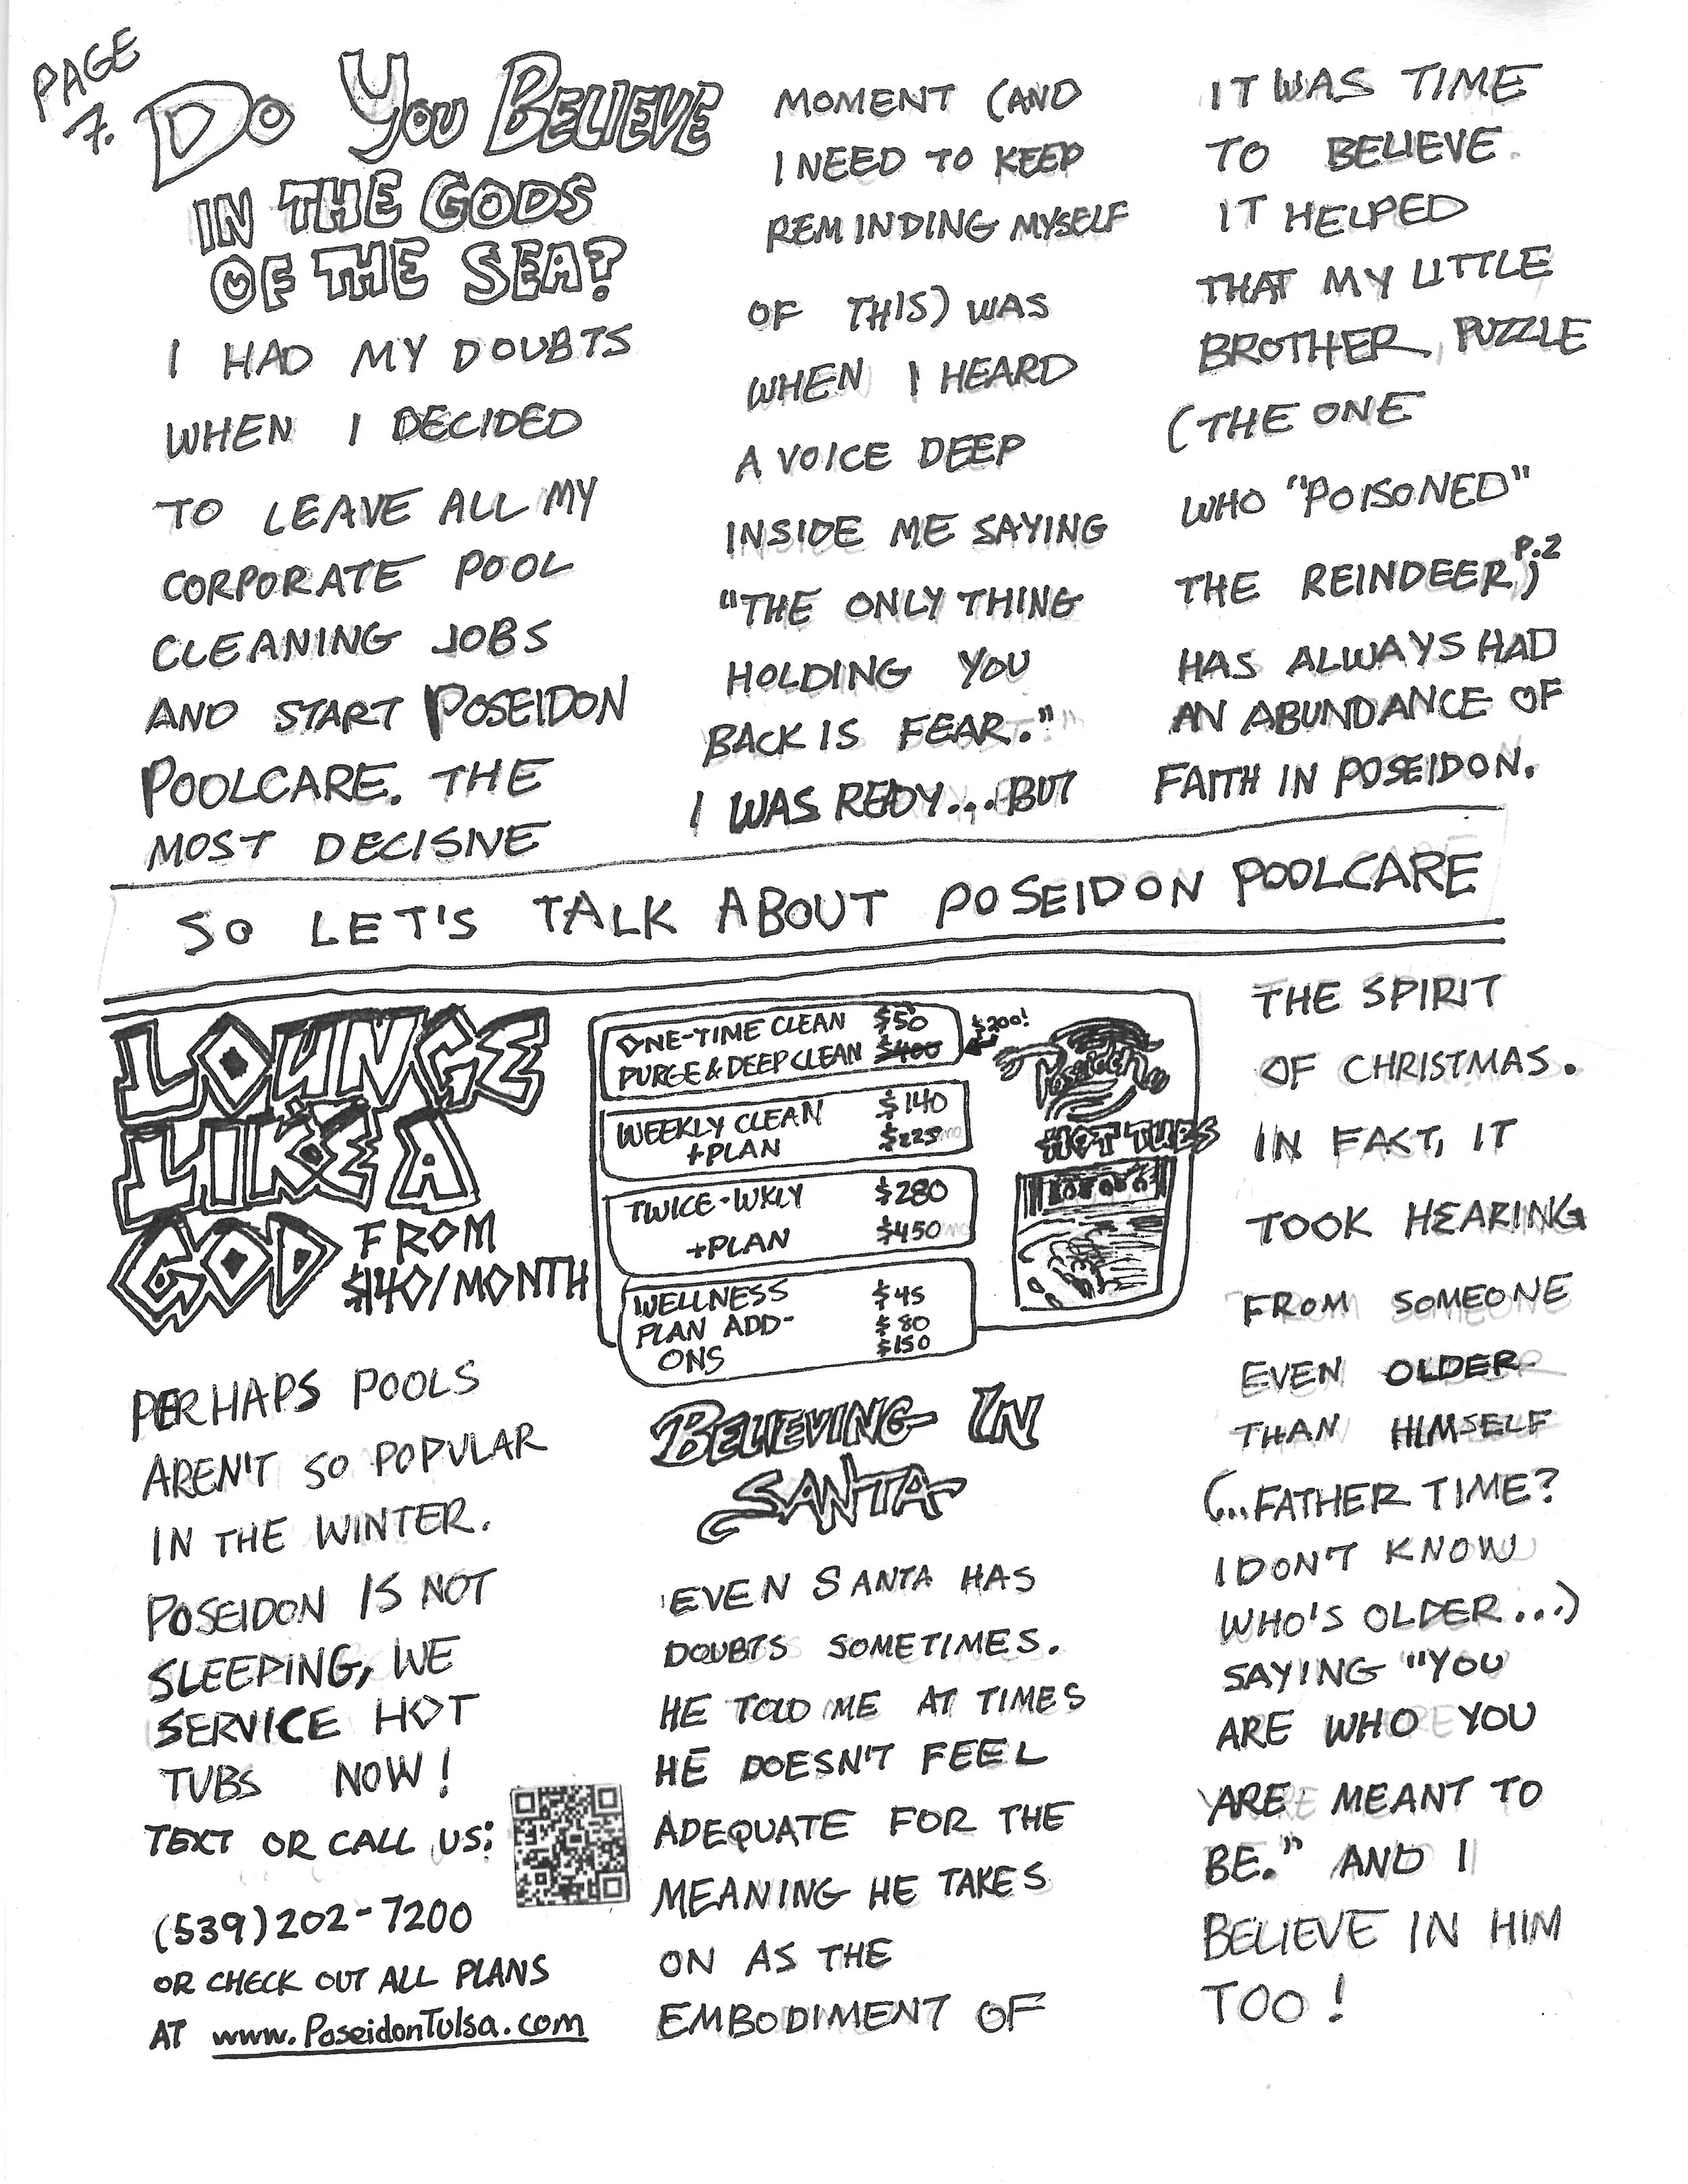 PAGE
7.
DO YOU BELIEVE
IN THE GODS
OF THE SEA?
I HAD MY DOUBTS
WHEN I DECIDED
TO LEAVE ALL MY
CORPORATE POOL
CLEANING JOBS
AND START POSEIDON
POOLCARE. THE
MOST DECISIVE
MOMENT (AND
I NEED TO KEEP
REMINDING MYSELF
OF THIS) WAS
WHEN I HEARD
A VOICE DEEP
INSIDE ME SAYING
"THE ONLY THING
HOLDING YOU
BACK IS FEAR."
I WAS READY... BUT
IT WAS TIME
TO BELIEVE.
IT HELPED
THAT MY LITTLE
BROTHER, PUZZLE
(THE ONE
WHO "POISONED"
THE REINDEER, P.2)
HAS ALWAYS HAD
AN ABUNDANCE OF
FAITH IN POSEIDON.
SO LET'S TALK ABOUT POSEIDON POOLCARE
LOUNGE
LIKE A
GOD FROM
$140/MONTH
ONE-TIME CLEAN $50
PURGE & DEEP CLEAN $400 $200!
WEEKLY CLEAN $140
+PLAN $225
TWICE-WKLY $280
+PLAN $450
WELLNESS $45
PLAN ADD- $80
ONS $150
Poseidon
HOT TUBS
PERHAPS POOLS
AREN'T SO POPULAR
IN THE WINTER.
POSEIDON IS NOT
SLEEPING, WE
SERVICE HOT
TUBS NOW!
TEXT OR CALL US:
(539) 202-7200
OR CHECK OUT ALL PLANS
AT www.PoseidonTulsa.com
BELIEVING IN
SANTA
EVEN SANTA HAS
DOUBTS SOMETIMES.
HE TOLD ME AT TIMES
HE DOESN'T FEEL
ADEQUATE FOR THE
MEANING HE TAKES
ON AS THE
EMBODIMENT OF
THE SPIRIT
OF CHRISTMAS.
IN FACT, IT
TOOK HEARING
FROM SOMEONE
EVEN OLDER
THAN HIMSELF
(...FATHER TIME?
I DON'T KNOW
WHO'S OLDER...)
SAYING "YOU
ARE WHO YOU
ARE MEANT TO
BE." AND I
BELIEVE IN HIM
TOO!